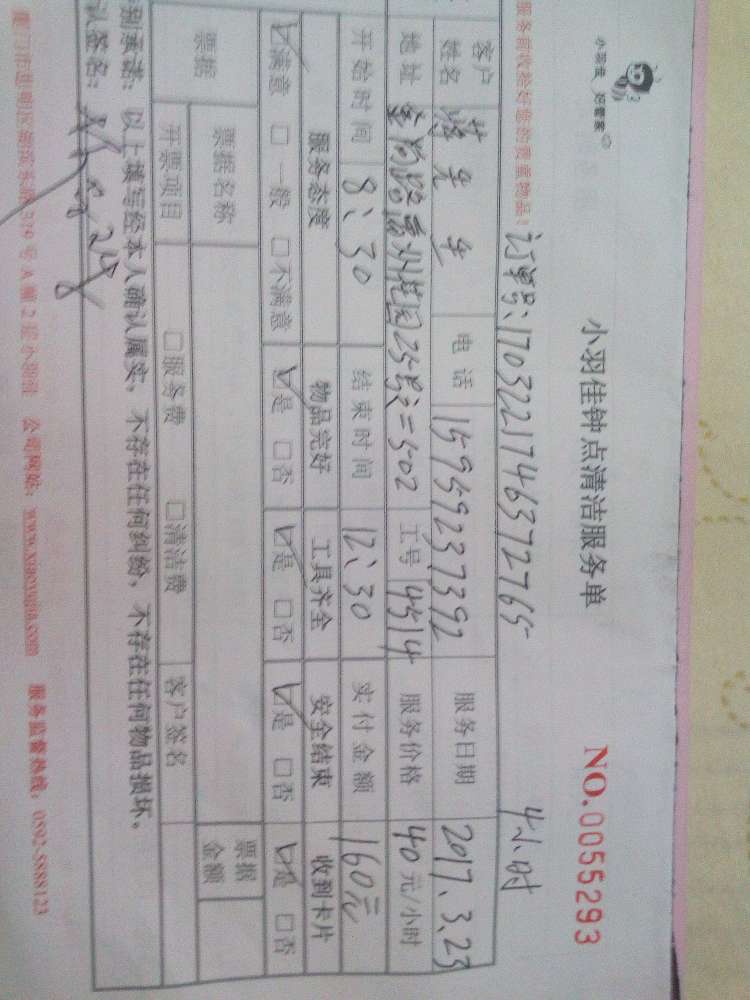 小羽佳 好管家
小羽佳钟点清洁服务单
NO.0055293
服务前收拾好您的贵重物品!
订单号:1703221746372765 4小时
客户姓名 先生 电话 15959237392 服务日期 2017.3.23
地址 花园25号之二502 工号 4514 服务价格 40元/小时
开始时间 8:30 结束时间 12:30 实付金额 160元
服务态度 物品完好 工具齐全 安全结束 收到卡片
☑满意 □一般 □不满意 ☑是 □否 ☑是 □否 ☑是 □否 ☑是 □否
票据 票据名称 票据金额
开票项目 □服务费 □清洁费 客户签名
别承诺:以上填写经本人确认属实,不存在任何纠纷,不存在任何物品损坏。
认签名:
379号A幢2层小羽佳 公司网站:www.xiaoyujia.com 服务监督热线:0592-5888123